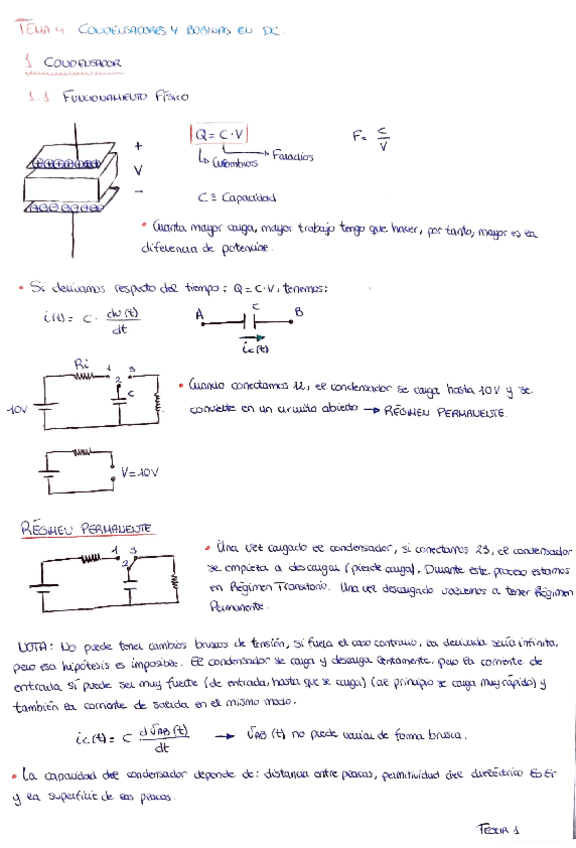 TEMA 4 CONDENSADORES Y BOBINAS EN DC.
1 CONDENSADOR
1.1 FUNCIONAMIENTO FÍSICO
+
V
−
Q = C·V
Culombios
Faradios
F = C/V
C ≡ Capacidad
• Cuanta mayor carga, mayor trabajo tengo que hacer, por tanto, mayor es la
diferencia de potencial.
• Si derivamos respecto del tiempo: Q = C·V, tenemos:
i(t) = C · dv(t)/dt
A C B
ic(t)
Ri 1 3
2
C
10V
• Cuando conectamos 12, el condensador se carga hasta 10V y se
convierte en un circuito abierto → RÉGIMEN PERMANENTE.
V=10V
RÉGIMEN PERMANENTE
1 3
2
• Una vez cargado el condensador, si conectamos 23, el condensador
se empieza a descargar (pierde carga). Durante este proceso estamos
en Régimen Transitorio. Una vez descargado volvemos a tener Régimen
Permanente.
NOTA: No puede tener cambios bruscos de tensión, si fuera el caso contrario, la derivada sería infinita,
pero esa hipótesis es imposible. El condensador se carga y descarga lentamente, pero la corriente de
entrada sí puede ser muy fuerte (de entrada, hasta que se carga) (al principio se carga muy rápido) y
también la corriente de salida en el mismo modo.
ic(t) = C dVAB(t)/dt → VAB(t) no puede variar de forma brusca.
• La capacidad del condensador depende de: distancia entre placas, permitividad del dieléctrico
y la superficie de las placas.
TEORÍA 1